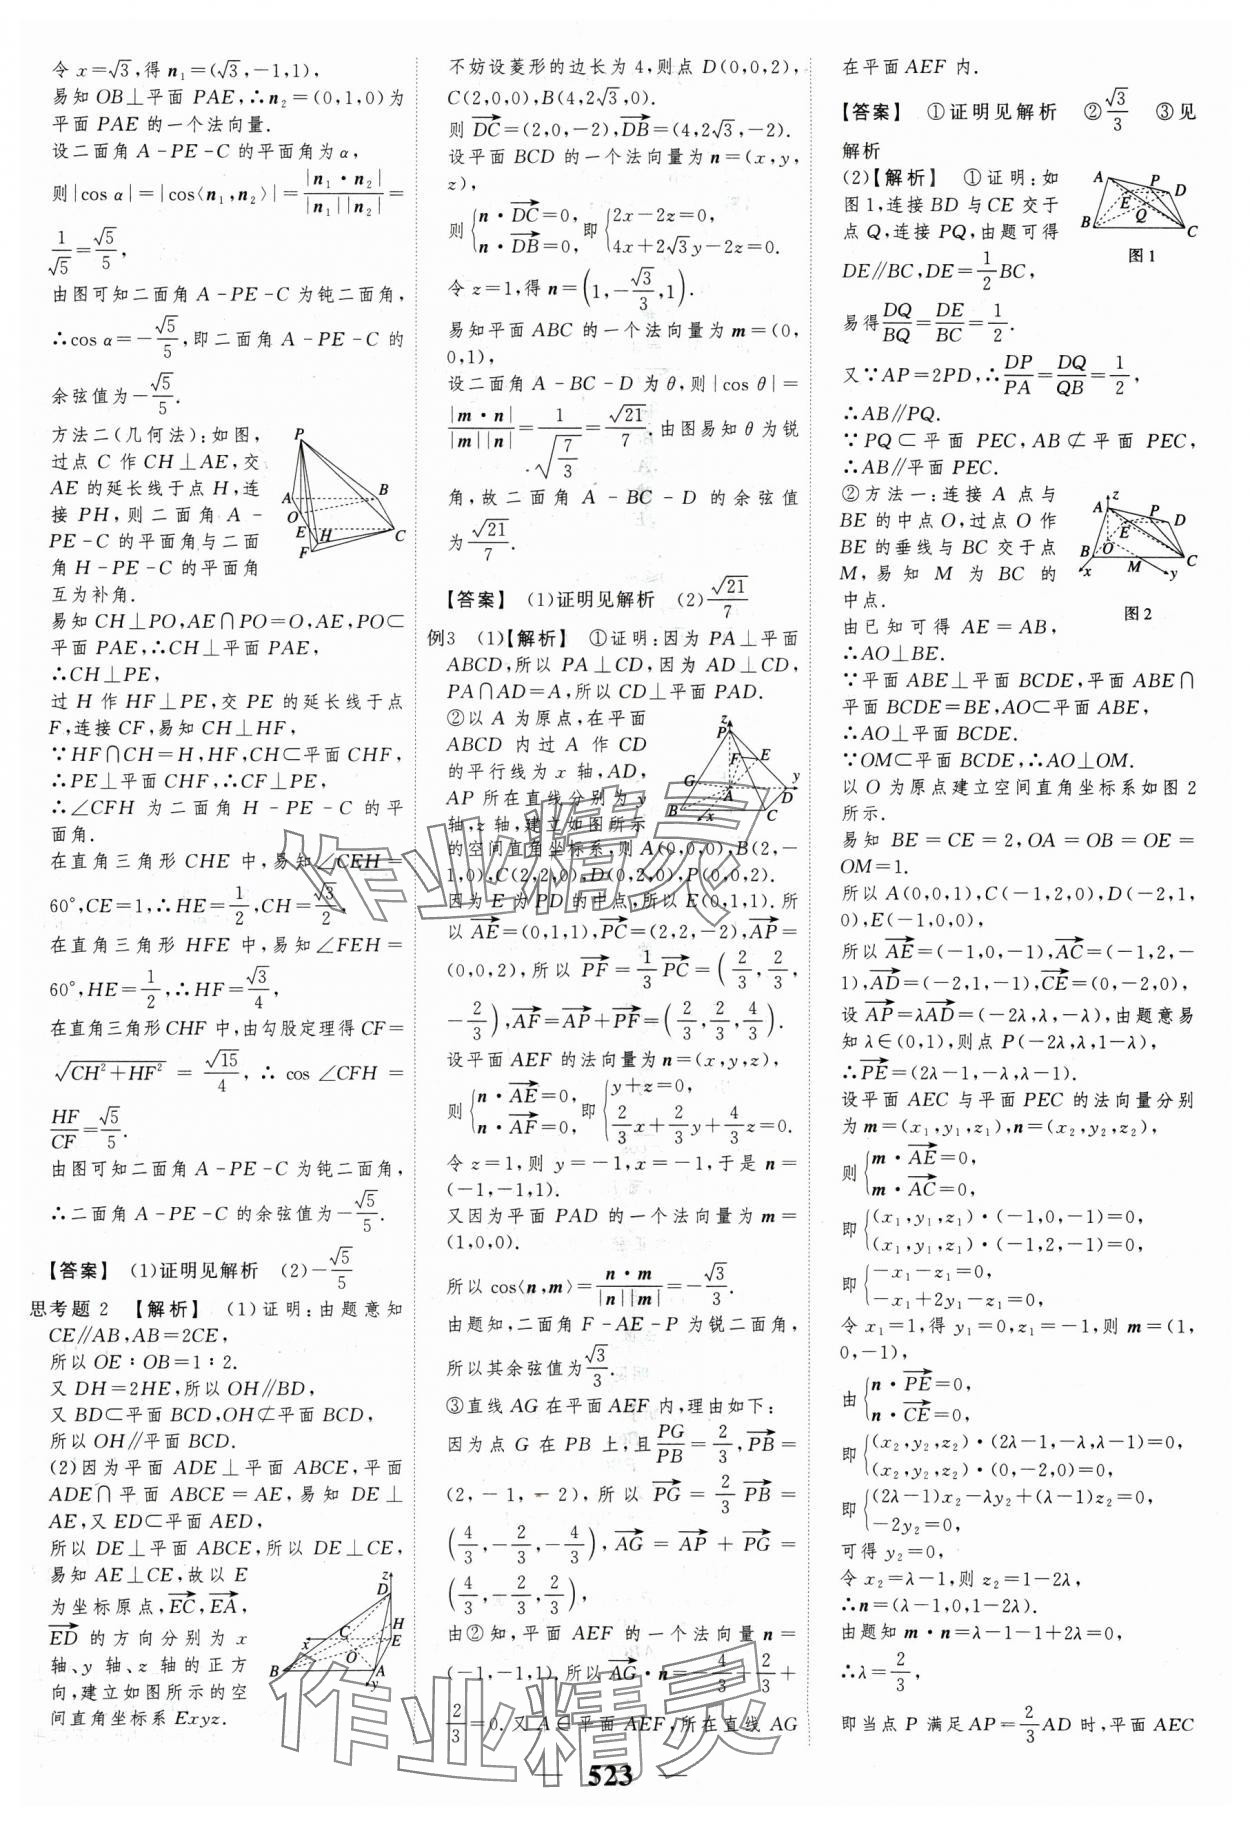 令 x=√3,得 n₁=(√3,-1,1),
易知 OB⊥平面 PAE,∴n₂=(0,1,0)为
平面 PAE 的一个法向量.
设二面角 A-PE-C 的平面角为 α,
则|cos α|=|cos⟨n₁,n₂⟩|=|n₁·n₂|/(|n₁||n₂|)=
1/√5=√5/5,
由图可知二面角 A-PE-C 为钝二面角,
∴cos α=-√5/5,即二面角 A-PE-C 的
余弦值为-√5/5.
方法二(几何法):如图,
过点 C 作 CH⊥AE,交
AE 的延长线于点 H,连
接 PH,则二面角 A-
PE-C 的平面角与二面
角 H-PE-C 的平面角
互为补角.
P A B O E H C F
易知 CH⊥PO,AE∩PO=O,AE,PO⊂
平面 PAE,∴CH⊥平面 PAE,
∴CH⊥PE,
过 H 作 HF⊥PE,交 PE 的延长线于点
F,连接 CF,易知 CH⊥HF,
∵HF∩CH=H,HF,CH⊂平面 CHF,
∴PE⊥平面 CHF,∴CF⊥PE,
∴∠CFH 为二面角 H-PE-C 的平
面角.
在直角三角形 CHE 中,易知∠CEH=
60°,CE=1,∴HE=1/2,CH=√3/2,
在直角三角形 HFE 中,易知∠FEH=
60°,HE=1/2,∴HF=√3/4,
在直角三角形 CHF 中,由勾股定理得 CF=
√(CH²+HF²)=√15/4,∴cos∠CFH=
HF/CF=√5/5.
由图可知二面角 A-PE-C 为钝二面角,
∴二面角 A-PE-C 的余弦值为-√5/5.
【答案】 (1)证明见解析 (2)-√5/5
思考题 2 【解析】 (1)证明:由题意知
CE∥AB,AB=2CE,
所以 OE∶OB=1∶2.
又 DH=2HE,所以 OH∥BD,
又 BD⊂平面 BCD,OH⊄平面 BCD,
所以 OH∥平面 BCD.
(2)因为平面 ADE⊥平面 ABCE,平面
ADE∩平面 ABCE=AE,易知 DE⊥
AE,又 ED⊂平面 AED,
所以 DE⊥平面 ABCE,所以 DE⊥CE,
易知 AE⊥CE,故以 E
为坐标原点,EC→,EA→,
ED→的方向分别为 x
轴、y 轴、z 轴的正方
向,建立如图所示的空
间直角坐标系 Exyz.
z D H x C E O B A y
不妨设菱形的边长为 4,则点 D(0,0,2),
C(2,0,0),B(4,2√3,0).
则 DC→=(2,0,-2),DB→=(4,2√3,-2).
设平面 BCD 的一个法向量为 n=(x,y,
z),
则{n·DC→=0, n·DB→=0,即{2x-2z=0, 4x+2√3y-2z=0.
令 z=1,得 n=(1,-√3/3,1).
易知平面 ABC 的一个法向量为 m=(0,
0,1),
设二面角 A-BC-D 为 θ,则|cos θ|=
|m·n|/(|m||n|)=1/√(7/3)=√21/7.由图易知 θ 为锐
角,故二面角 A-BC-D 的余弦值
为√21/7.
【答案】 (1)证明见解析 (2)√21/7
例3 (1)【解析】 ①证明:因为 PA⊥平面
ABCD,所以 PA⊥CD,因为 AD⊥CD,
PA∩AD=A,所以 CD⊥平面 PAD.
②以 A 为原点,在平面
ABCD 内过 A 作 CD
的平行线为 x 轴,AD,
AP 所在直线分别为 y
轴,z 轴,建立如图所示
z P F E G y A D B x C
的空间直角坐标系,则 A(0,0,0),B(2,-
1,0),C(2,2,0),D(0,2,0),P(0,0,2).
因为 E 为 PD 的中点,所以 E(0,1,1).所
以 AE→=(0,1,1),PC→=(2,2,-2),AP→=
(0,0,2),所以 PF→=1/3PC→=(2/3,2/3,
-2/3),AF→=AP→+PF→=(2/3,2/3,4/3).
设平面 AEF 的法向量为 n=(x,y,z),
则{n·AE→=0, n·AF→=0,即{y+z=0, 2/3x+2/3y+4/3z=0.
令 z=1,则 y=-1,x=-1,于是 n=
(-1,-1,1).
又因为平面 PAD 的一个法向量为 m=
(1,0,0).
所以 cos⟨n,m⟩=n·m/(|n||m|)=-√3/3.
由题知,二面角 F-AE-P 为锐二面角,
所以其余弦值为√3/3.
③直线 AG 在平面 AEF 内,理由如下:
因为点 G 在 PB 上,且PG/PB=2/3,PB→=
(2,-1,-2),所以 PG→=2/3PB→=
(4/3,-2/3,-4/3),AG→=AP→+PG→=
(4/3,-2/3,2/3),
由②知,平面 AEF 的一个法向量 n=
(-1,-1,1),所以 AG→·n=-4/3+2/3+
2/3=0.又 A∈平面 AEF,所在直线 AG
在平面 AEF 内.
【答案】 ①证明见解析 ②√3/3 ③见
解析
(2)【解析】 ①证明:如
图 1,连接 BD 与 CE 交于
点 Q,连接 PQ,由题可得
DE∥BC,DE=1/2BC,
A P D E Q B C
图 1
易得DQ/BQ=DE/BC=1/2.
又∵AP=2PD,∴DP/PA=DQ/QB=1/2,
∴AB∥PQ.
∵PQ⊂平面 PEC,AB⊄平面 PEC,
∴AB∥平面 PEC.
②方法一:连接 A 点与
BE 的中点 O,过点 O 作
BE 的垂线与 BC 交于点
M,易知 M 为 BC 的
中点.
z A P D E B O C x M y
图 2
由已知可得 AE=AB,
∴AO⊥BE.
∵平面 ABE⊥平面 BCDE,平面 ABE∩
平面 BCDE=BE,AO⊂平面 ABE,
∴AO⊥平面 BCDE.
∵OM⊂平面 BCDE,∴AO⊥OM.
以 O 为原点建立空间直角坐标系如图 2
所示.
易知 BE=CE=2,OA=OB=OE=
OM=1.
所以 A(0,0,1),C(-1,2,0),D(-2,1,
0),E(-1,0,0),
所以 AE→=(-1,0,-1),AC→=(-1,2,-
1),AD→=(-2,1,-1),CE→=(0,-2,0),
设 AP→=λAD→=(-2λ,λ,-λ),由题意易
知 λ∈(0,1),则点 P(-2λ,λ,1-λ),
∴PE→=(2λ-1,-λ,λ-1).
设平面 AEC 与平面 PEC 的法向量分别
为 m=(x₁,y₁,z₁),n=(x₂,y₂,z₂),
则{m·AE→=0, m·AC→=0,
即{(x₁,y₁,z₁)·(-1,0,-1)=0, (x₁,y₁,z₁)·(-1,2,-1)=0,
即{-x₁-z₁=0, -x₁+2y₁-z₁=0,
令 x₁=1,得 y₁=0,z₁=-1,则 m=(1,
0,-1),
由{n·PE→=0, n·CE→=0,
即{(x₂,y₂,z₂)·(2λ-1,-λ,λ-1)=0, (x₂,y₂,z₂)·(0,-2,0)=0,
即{(2λ-1)x₂-λy₂+(λ-1)z₂=0, -2y₂=0,
可得 y₂=0,
令 x₂=λ-1,则 z₂=1-2λ,
∴n=(λ-1,0,1-2λ).
由题知 m·n=λ-1-1+2λ=0,
∴λ=2/3,
即当点 P 满足 AP=2/3AD 时,平面 AEC
523
作业精灵
作业精灵